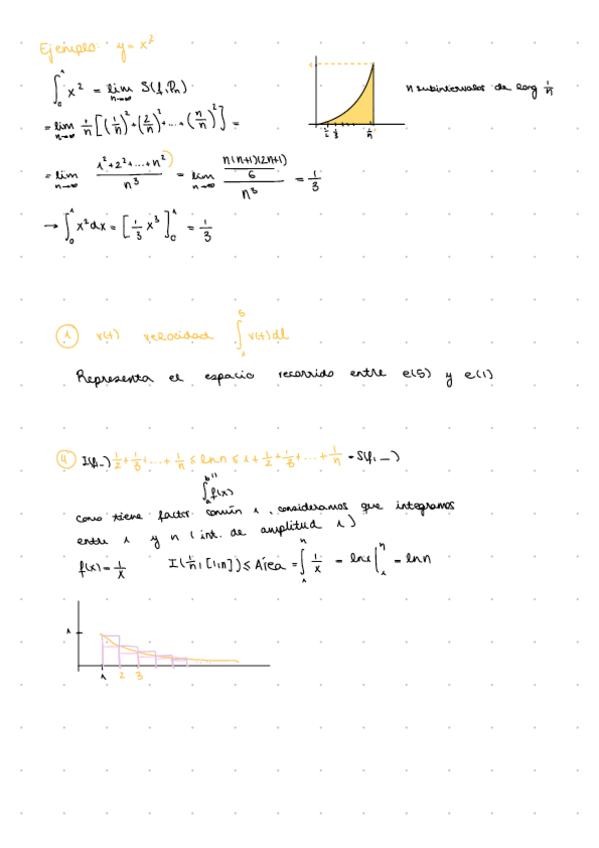 Ejemplo: y = x²
∫₀¹ x² = lim n→∞ S(f, Pn)
n subintervalos de long 1/n
= lim n→∞ 1/n [(1/n)² + (2/n)² + ... + (n/n)²] =
= lim n→∞ (1² + 2² + ... + n²) / n³ = lim n→∞ (n(n+1)(2n+1)/6) / n³ = 1/3
→ ∫₀¹ x² dx = [1/3 x³]₀¹ = 1/3
1 v(t) velocidad ∫₁⁵ v(t) dt
Representa el espacio recorrido entre e(5) y e(1)
4 I(f, _) 1/2 + 1/3 + ... + 1/n ≤ ln n ≤ 1 + 1/2 + 1/3 + ... + 1/n = S(f, _)
∫ₐᵇ f(x)
como tiene factor común 1, consideramos que integramos
entre 1 y n (int. de amplitud 1)
f(x) = 1/x I(1/n, [1,n]) ≤ Área = ∫₁ⁿ 1/x = ln x |₁ⁿ = ln n
1
1 2 3